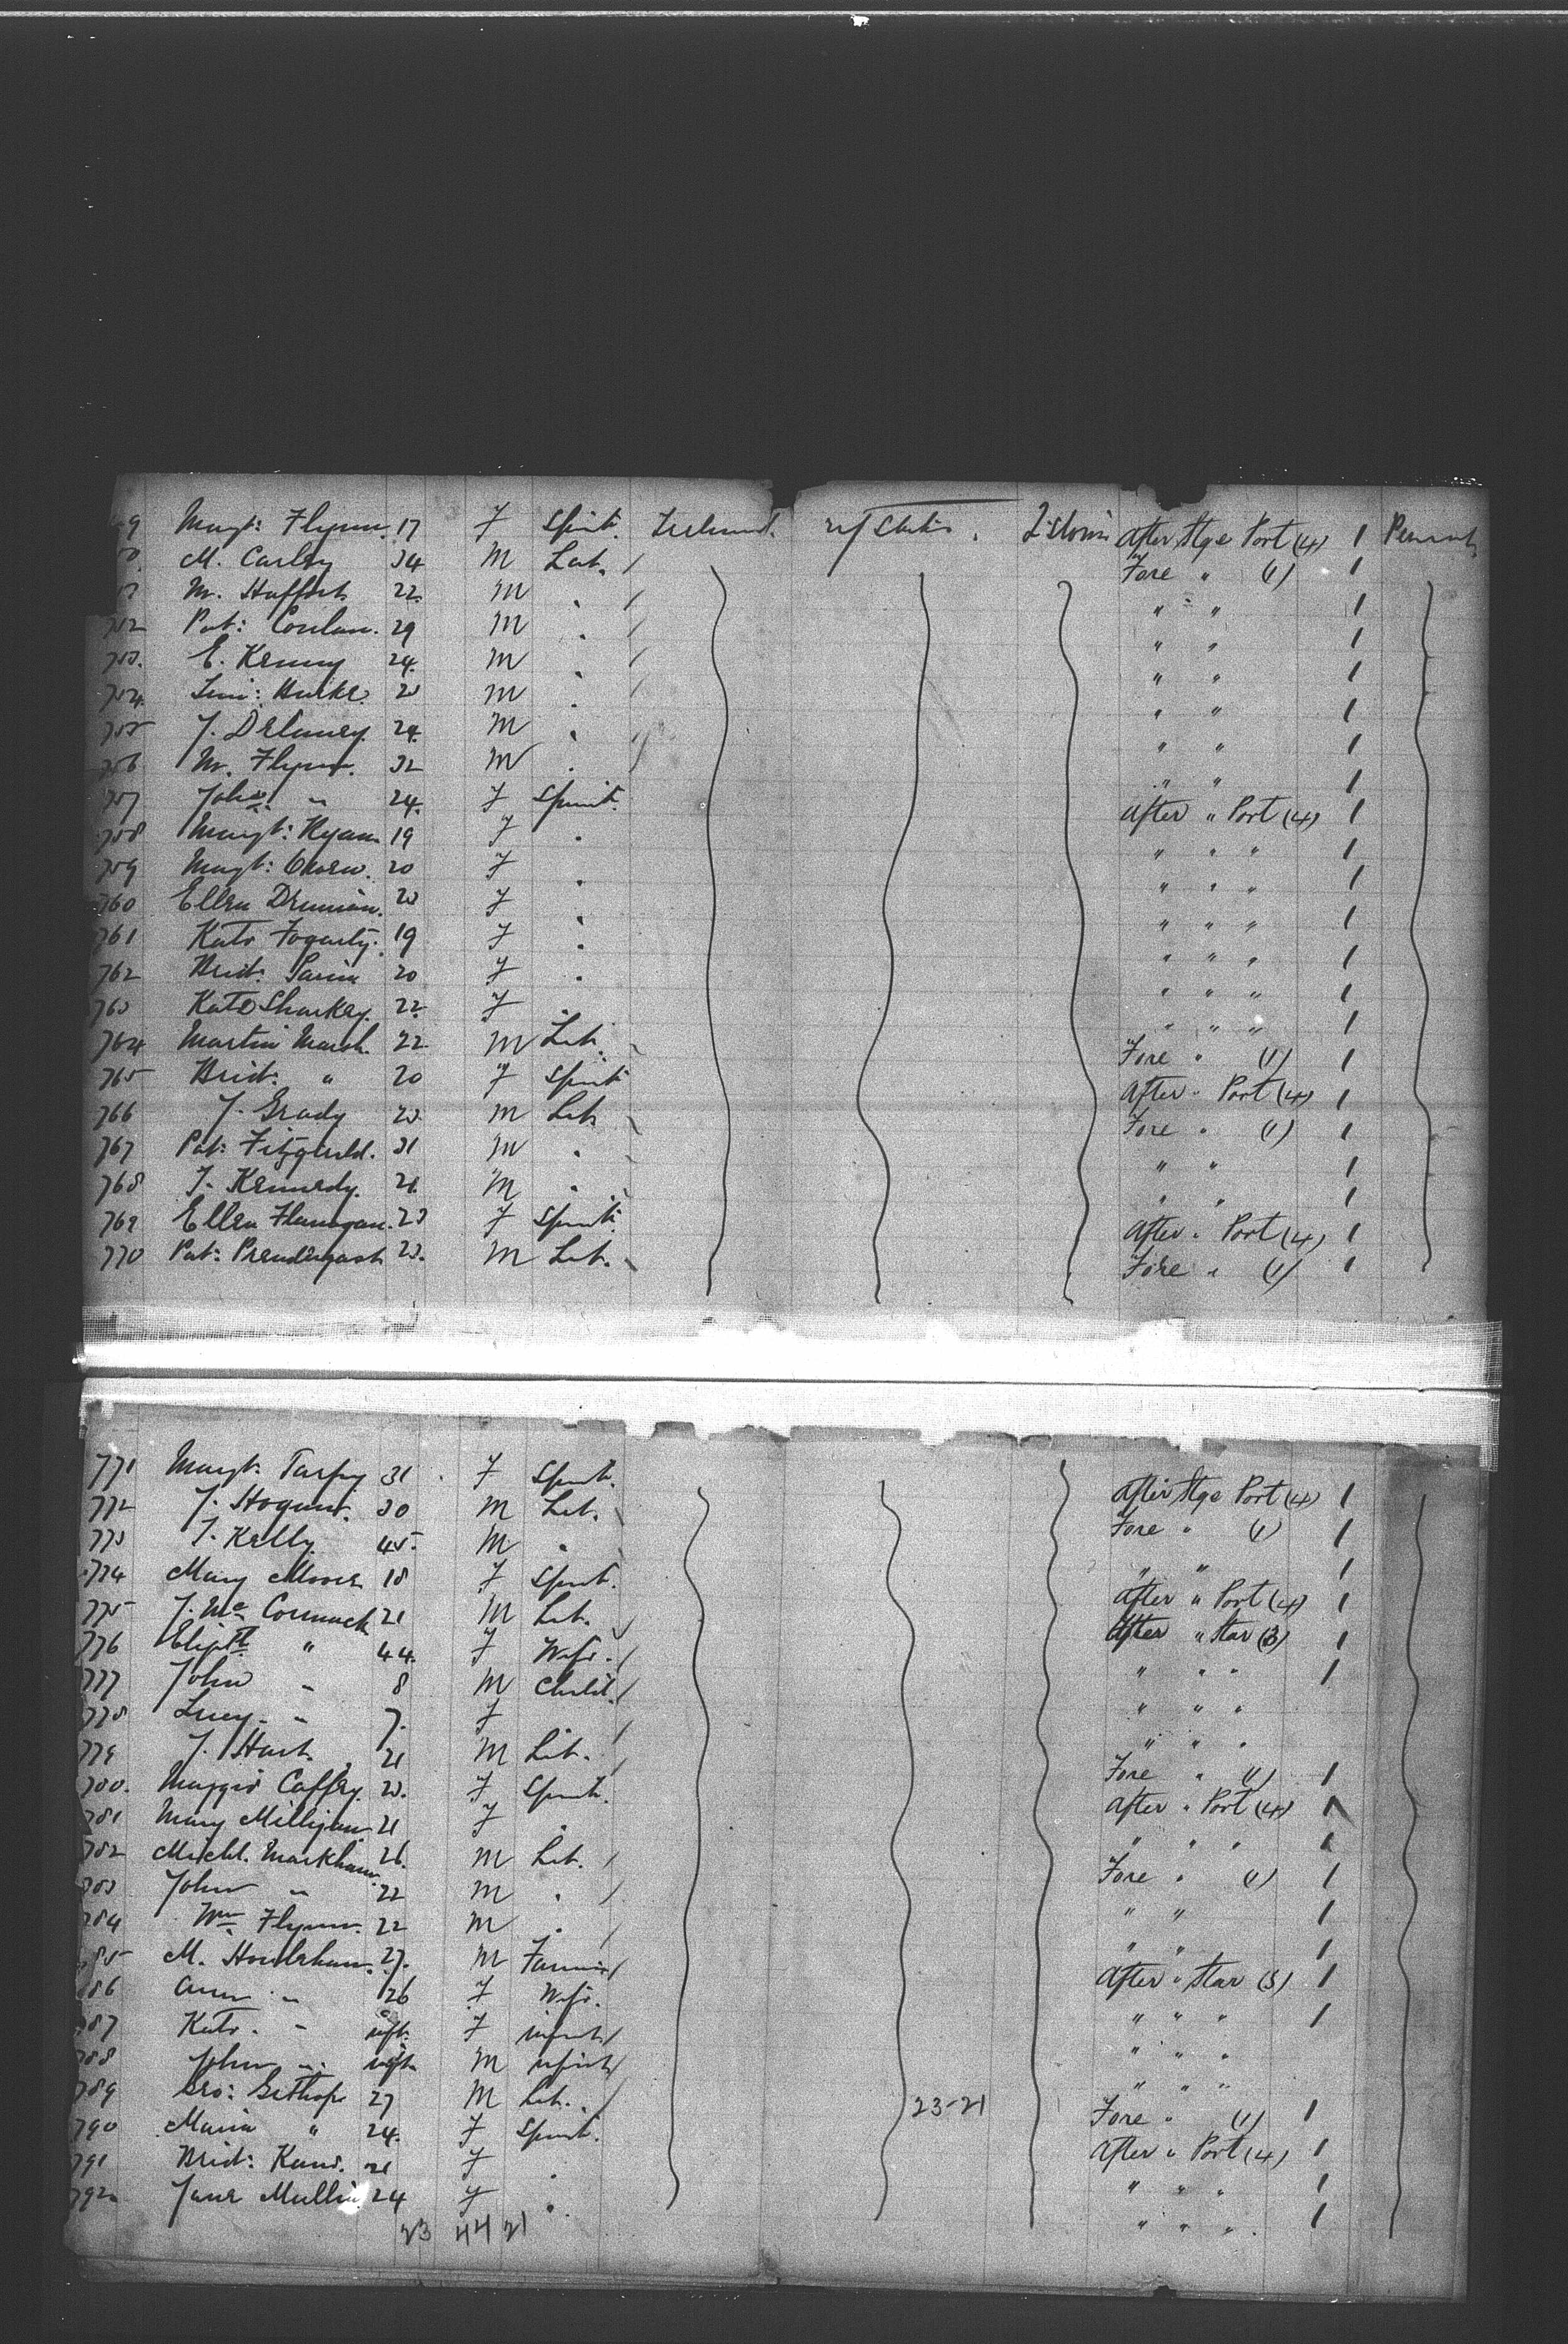 9 Margt: Flynn 17 F Spinst. Ireland. U/States. After Stge Port (4) 1
M. Carley 34 M Lab. Fore " (1) 1
M. 22 M " " " 1
752 Pat: Conlan. 29 M " " " 1
753. E. Kenny 24. M " " " 1
754 Burke. M " " " 1
755 J. Delaney. 24. M " " " 1
756 M. Flynn. 32 M " " " 1
757 " 24. F Spinst. After " Port (4) 1
758 Margt: Ryan 19 F " " " " 1
759 Margt: 20 F " " " " 1
760 Ellen F " " " " 1
761 Kate Fogarty. 19 F " " " " 1
762 Brid: 20 F " " " " 1
763 Kate Sharkey. 22. F " " " " 1
764 Martin Marsh. 22 M Lab. Fore " (1) 1
765 Brid: " 20 F Spinst After " Port (4) 1
766 J. Grady M Lab. Fore " (1) 1
767 Pat: Fitzgerald. 31 M " " " 1
768 J. Kennedy. M " " " 1
769 Ellen Flanagan. 23 F Spinst. After " Port (4) 1
770 Pat: Prendergast M Lab. Fore " (1) 1
771 Margt. Tarpey 31 F Spinst. After Stge Port (4) 1
772 J. Hogan. 30 M Lab. Fore " (1) 1
773 J. Kelly. 45. M " " " 1
774 Mary Moore 18 F Spinst. After " Port (4) 1
775 J. Mc Cormack 21 M Lab. After " Star (3) 1
776 Elizth " 44. F Wife. " " " 1
777 John " 8 M Child. " " "
778 Lucy " 7. F " " "
779 J. Hart 21 M Lab. Fore " (1) 1
780. Maggie Caffrey F Spinst. After " Port (4) 1
781 Mary Milligan 21 F " " " " 1
782 Michl. Markham 26. M Lab. Fore " (1) 1
783 John " 22 M " " " 1
784 Wm Flynn. 22 M " " " 1
785 M. Houlahan. 27. M Farmer After " Star (3) 1
786 Ann " 26 F Wife. " " " 1
787 Kate. " inft. F infant " " "
788 John " inft. M infant " " "
789 Geo: 27 M Lab. 23-21 Fore " (1) 1
790 Maria " 24. F Spinst. After " Port (4) 1
791 Brid: Kane. 21 F " " " 1
792 Jane Mullin 24 F " " " " 1
23 44 21